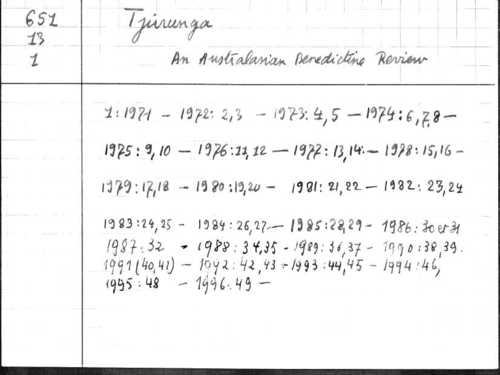 651
13
1
Tjurunga
An Australasian Benedictine Review
1:1971 - 1972:2,3 - 1973:4,5 - 1974:6,7,8 -
1975:9,10 - 1976:11,12 - 1977:13,14 - 1978:15,16 -
1979:17,18 - 1980:19,20 - 1981:21,22 - 1982:23,24
1983:24,25 - 1984:26,27 - 1985:28,29 - 1986:30 et 31
1987:32 - 1988:34,35 - 1989:36,37 - 1990:38,39.
1991(40,41) - 1992:42,43 - 1993:44,45 - 1994:46,
1995:48 - 1996:49 -